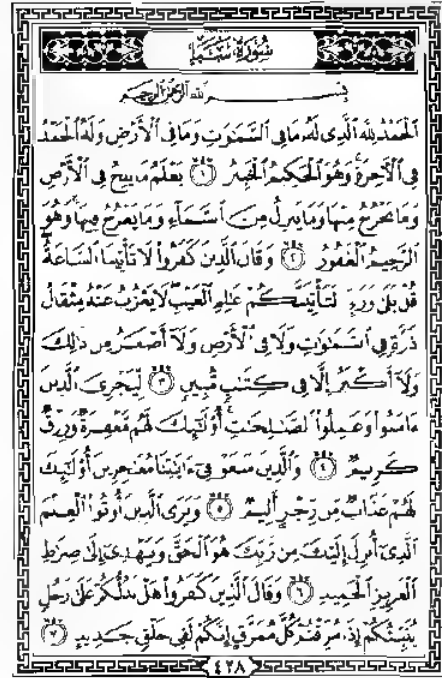 سُورَةُ سَبَإٍ
بِسْمِ ٱللَّهِ ٱلرَّحْمَٰنِ ٱلرَّحِيمِ
ٱلْحَمْدُ لِلَّهِ ٱلَّذِى لَهُۥ مَا فِى ٱلسَّمَٰوَٰتِ وَمَا فِى ٱلْأَرْضِ وَلَهُ ٱلْحَمْدُ
فِى ٱلْأَخِرَةِ وَهُوَ ٱلْحَكِيمُ ٱلْخَبِيرُ ١ يَعْلَمُ مَا يَلِجُ فِى ٱلْأَرْضِ
وَمَا يَخْرُجُ مِنْهَا وَمَا يَنزِلُ مِنَ ٱلسَّمَآءِ وَمَا يَعْرُجُ فِيهَا وَهُوَ
ٱلرَّحِيمُ ٱلْغَفُورُ ٢ وَقَالَ ٱلَّذِينَ كَفَرُوا۟ لَا تَأْتِينَا ٱلسَّاعَةُ
قُلْ بَلَىٰ وَرَبِّى لَتَأْتِيَنَّكُمْ عَٰلِمِ ٱلْغَيْبِ لَا يَعْزُبُ عَنْهُ مِثْقَالُ
ذَرَّةٍ فِى ٱلسَّمَٰوَٰتِ وَلَا فِى ٱلْأَرْضِ وَلَآ أَصْغَرُ مِن ذَٰلِكَ
وَلَآ أَكْبَرُ إِلَّا فِى كِتَٰبٍ مُّبِينٍ ٣ لِّيَجْزِىَ ٱلَّذِينَ
ءَامَنُوا۟ وَعَمِلُوا۟ ٱلصَّٰلِحَٰتِ أُو۟لَٰٓئِكَ لَهُم مَّغْفِرَةٌ وَرِزْقٌ
كَرِيمٌ ٤ وَٱلَّذِينَ سَعَوْ فِىٓ ءَايَٰتِنَا مُعَٰجِزِينَ أُو۟لَٰٓئِكَ
لَهُمْ عَذَابٌ مِّن رِّجْزٍ أَلِيمٌ ٥ وَيَرَى ٱلَّذِينَ أُوتُوا۟ ٱلْعِلْمَ
ٱلَّذِىٓ أُنزِلَ إِلَيْكَ مِن رَّبِّكَ هُوَ ٱلْحَقَّ وَيَهْدِىٓ إِلَىٰ صِرَٰطِ
ٱلْعَزِيزِ ٱلْحَمِيدِ ٦ وَقَالَ ٱلَّذِينَ كَفَرُوا۟ هَلْ نَدُلُّكُمْ عَلَىٰ رَجُلٍ
يُنَبِّئُكُمْ إِذَا مُزِّقْتُمْ كُلَّ مُمَزَّقٍ إِنَّكُمْ لَفِى خَلْقٍ جَدِيدٍ ٧
٤٢٨